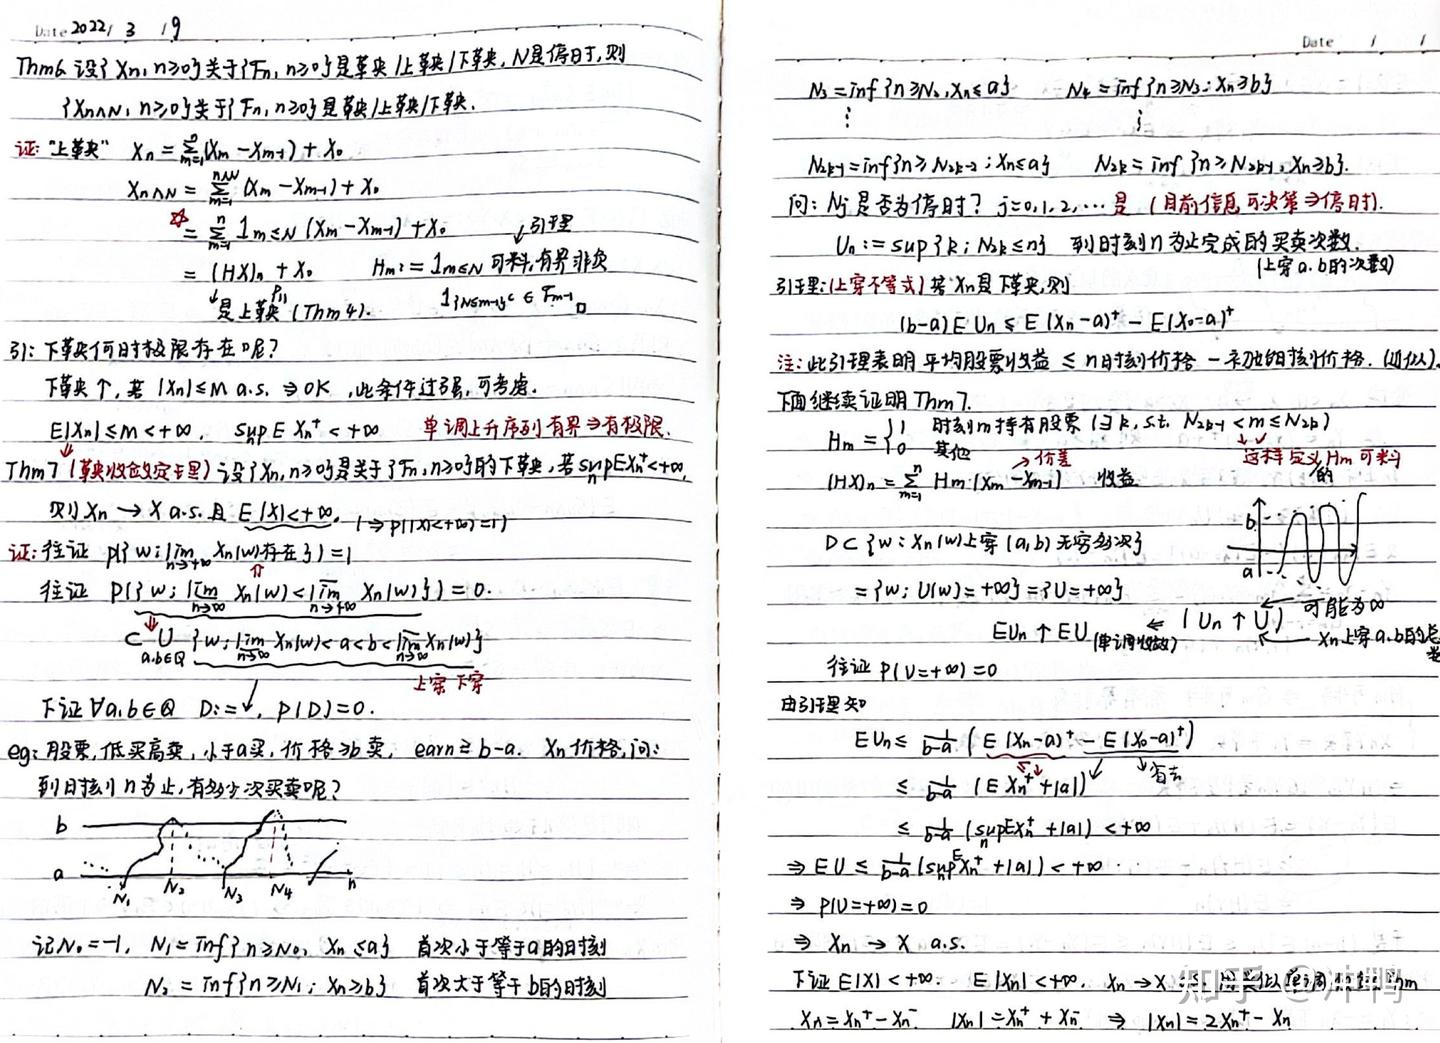 Date 2022/ 3 /9
Thm6 设{Xn, n≥0}关于{Fn, n≥0}是鞅/上鞅/下鞅, N是停时, 则
{Xn∧N, n≥0}关于{Fn, n≥0}是鞅/上鞅/下鞅.
证: "上鞅" Xn = Σ_{m=1}^{n}(Xm - Xm-1) + X0
Xn∧N = Σ_{m=1}^{n∧N}(Xm - Xm-1) + X0
☆ = Σ_{m=1}^{n} 1_{m≤N} (Xm - Xm-1) + X0 ↙引理
= (HX)n + X0 Hm := 1_{m≤N} 可料, 有界非负
↓是上鞅 (Thm4). 1_{{N≤m-1}^c} ∈ Fm-1 □
引: 下鞅何时极限存在呢?
下鞅↑, 若 |Xn|≤M a.s. ⇒ OK, 此条件过强, 可考虑.
E|Xn|≤M<+∞, sup E Xn⁺<+∞ 单调上升序列有界⇒有极限.
Thm7 (鞅收敛定理) 设{Xn, n≥0}是关于{Fn, n≥0}的下鞅, 若 sup_n EXn⁺<+∞,
则 Xn → X a.s. 且 E|X|<+∞. (⇒P(|X|<+∞)=1)
证: 往证 P({w: lim_{n→+∞} Xn(w)存在})=1
⇑
往证 P({w: \underline{lim}_{n→∞} Xn(w) < \overline{lim}_{n→+∞} Xn(w)})=0.
⇓
⊂ ∪_{a,b∈Q} {w: \underline{lim}_{n→∞} Xn(w) < a < b < \overline{lim}_{n→∞} Xn(w)}
上穿 下穿
下证 ∀a,b∈Q D:=↓, P(D)=0.
eg: 股票, 低买高卖, 小于a买, 价格≥b卖, earn≥b-a. Xn价格, 问:
到时刻n为止, 有多少次买卖呢?
b
a N1 N2 N3 N4 n
记N0=-1, N1=inf{n≥N0, Xn≤a} 首次小于等于a的时刻
N2=inf{n≥N1; Xn≥b} 首次大于等于b的时刻
Date / /
N3=inf{n≥N2, Xn≤a} N4=inf{n≥N3; Xn≥b}
⋮ ⋮
N2k-1=inf{n≥N2k-2; Xn≤a} N2k=inf{n≥N2k-1, Xn≥b}.
问: Nj是否为停时? j=0,1,2,… 是 (目前信息可决策⇒停时).
Un := sup{k; N2k≤n} 到时刻n为止完成的买卖次数.
(上穿a.b的次数)
引理: (上穿不等式) 若Xn是下鞅, 则
(b-a)E Un ≤ E(Xn-a)⁺ - E(X0-a)⁺
注: 此引理表明 平均股票收益 ≤ n时刻价格 - 初始时刻价格. (近似).
下面继续证明Thm7.
Hm = { 1 时刻m持有股票 (∃k, s.t. N2k-1 < m ≤ N2k)
0 其他 这样定义Hm可料的
(HX)n = Σ_{m=1}^{n} Hm·(Xm - Xm-1) 收益 →价差
D⊂{w: Xn(w)上穿(a,b)无穷多次} b a
= {w; U(w)=+∞} = {U=+∞}
EUn ↑ EU (单调收敛) ⇐ (Un ↑ U) 可能为∞
Xn上穿a.b的总数
往证 P(U=+∞)=0
由引理知
EUn ≤ 1/(b-a) (E(Xn-a)⁺ - E(X0-a)⁺)
省去
≤ 1/(b-a) (EXn⁺ + |a|)
≤ 1/(b-a) (sup_n EXn⁺ + |a|) < +∞
⇒ EU ≤ 1/(b-a) (sup_n EXn⁺ + |a|) < +∞
⇒ P(U=+∞)=0
⇒ Xn → X a.s.
下证E|X|<+∞. E|Xn|<+∞, Xn→X
Xn=Xn⁺-Xn⁻ |Xn|=Xn⁺+Xn⁻ ⇒ |Xn|=2Xn⁺-Xn
知乎 @冲鸭